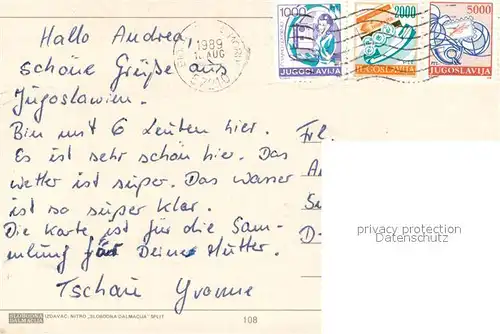 Hallo Andrea,
schöne Grüße aus
Jugoslawien.
Bin mit 6 Leuten hier.
Es ist sehr schön hier. Das
wetter ist super. Das wasser
ist so super klar.
Die Karte ist für die Sam-
mlung für Deine Mutter.
Tschau Yvonne
1989
AUG
52210
1000
JUGOSLAVIJA
2000
JUGOSLAVIJA
5000
JUGOSLAVIJA
Frl.
D-
privacy protection
Datenschutz
SLOBODNA
DALMACIJA
IZDAVAČ: NIŠRO „SLOBODNA DALMACIJA" SPLIT
108